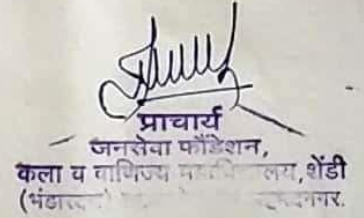 प्राचार्य
जनसेवा फौंडेशन,
कला व वाणिज्य महाविद्यालय, शेंडी
(भंडारदरा)